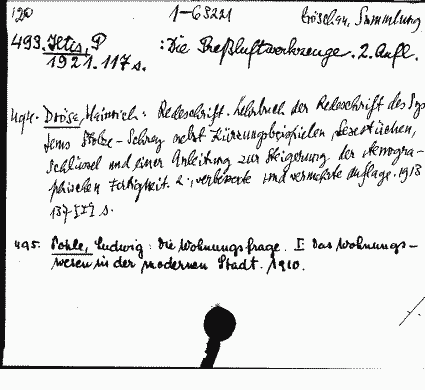 120 1-63221 Göschen, Sammlung
493. Iltis, P : Die Preßluftwerkzeuge. 2. Aufl.
1921. 117 s.
494. Dröse, Heinrich: Redeschrift. Lehrbuch der Redeschrift des Sys
tems Stolze-Schrey nebst Kürzungsbeispielen, Lesestücken,
Schlüssel und einer Anleitung zur Steigerung der stenogra-
phischen Fertigkeit. 2., verbesserte und vermehrte Auflage. 1913
137 s.
495. Pohle, Ludwig: Die Wohnungsfrage. I: Das Wohnungs-
wesen in der modernen Stadt. 1910.